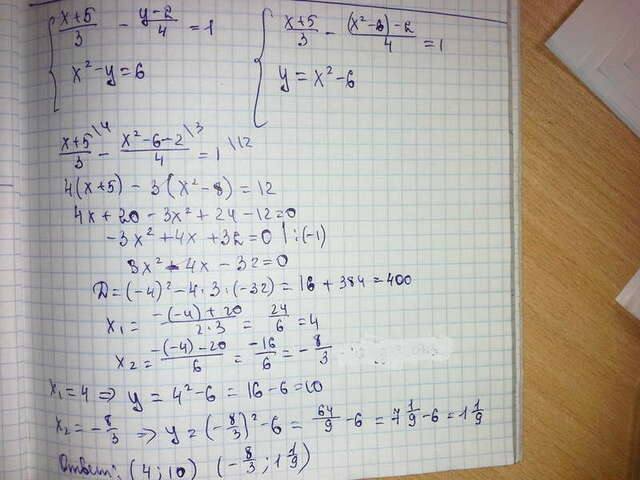 { (x+5)/3 - (y-2)/4 = 1
x² - y = 6
{ (x+5)/3 - (x²-6)-2)/4 = 1
y = x² - 6
(x+5)/3 \4 - (x²-6-2)/4 \3 = 1 \12
4(x+5) - 3(x²-8) = 12
4x + 20 - 3x² + 24 - 12 = 0
-3x² + 4x + 32 = 0 | :(-1)
3x² - 4x - 32 = 0
D = (-4)² - 4·3·(-32) = 16 + 384 = 400
x₁ = (-(-4) + 20)/(2·3) = 24/6 = 4
x₂ = (-(-4) - 20)/6 = -16/6 = -8/3
x₁ = 4 ⇒ y = 4² - 6 = 16 - 6 = 10
x₂ = -8/3 ⇒ y = (-8/3)² - 6 = 64/9 - 6 = 7 1/9 - 6 = 1 1/9
Ответ: (4; 10) (-8/3; 1 1/9)